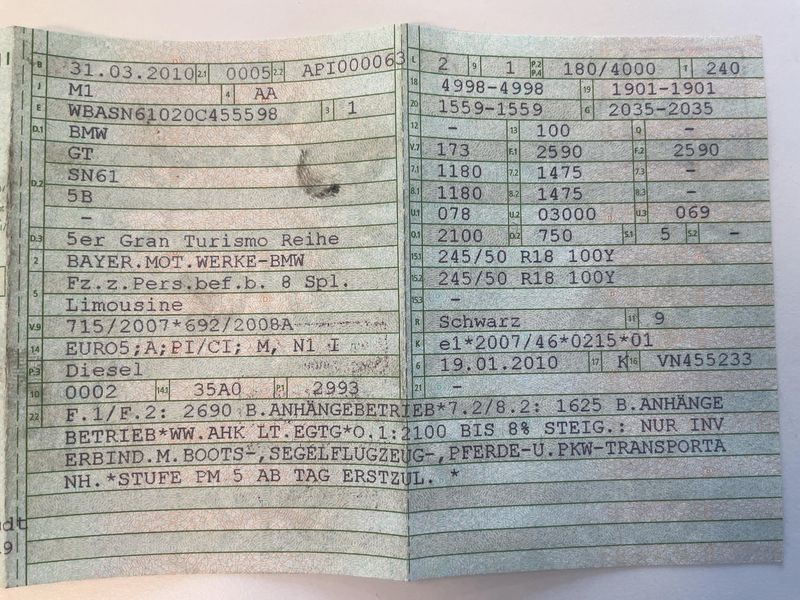 B 31.03.2010 2.1 0005 2.2 API000063
J M1 4 AA
E WBASN61020C455598 3 1
D.1 BMW
GT
D.2 SN61
5B
–
D.3 5er Gran Turismo Reihe
2 BAYER.MOT.WERKE-BMW
5 Fz.z.Pers.bef.b. 8 Spl.
Limousine
V.9 715/2007*692/2008A
14 EURO5;A;PI/CI; M, N1 I
P.3 Diesel
10 0002 14.1 35A0 P.1 2993
L 2 9 1 P.2 P.4 180/4000 T 240
18 4998-4998 19 1901-1901
20 1559-1559 G 2035-2035
12 – 13 100 Q –
V.7 173 F.1 2590 F.2 2590
7.1 1180 7.2 1475 7.3 –
8.1 1180 8.2 1475 8.3 –
U.1 078 U.2 03000 U.3 069
O.1 2100 O.2 750 S.1 5 S.2 –
15.1 245/50 R18 100Y
15.2 245/50 R18 100Y
15.3 –
R Schwarz 11 9
K e1*2007/46*0215*01
6 19.01.2010 17 K 16 VN455233
21 –
22 F.1/F.2: 2690 B.ANHÄNGEBETRIEB*7.2/8.2: 1625 B.ANHÄNGE
BETRIEB*WW.AHK LT.EGTG*O.1:2100 BIS 8% STEIG.: NUR INV
ERBIND.M.BOOTS-,SEGELFLUGZEUG-,PFERDE-U.PKW-TRANSPORTA
NH.*STUFE PM 5 AB TAG ERSTZUL. *